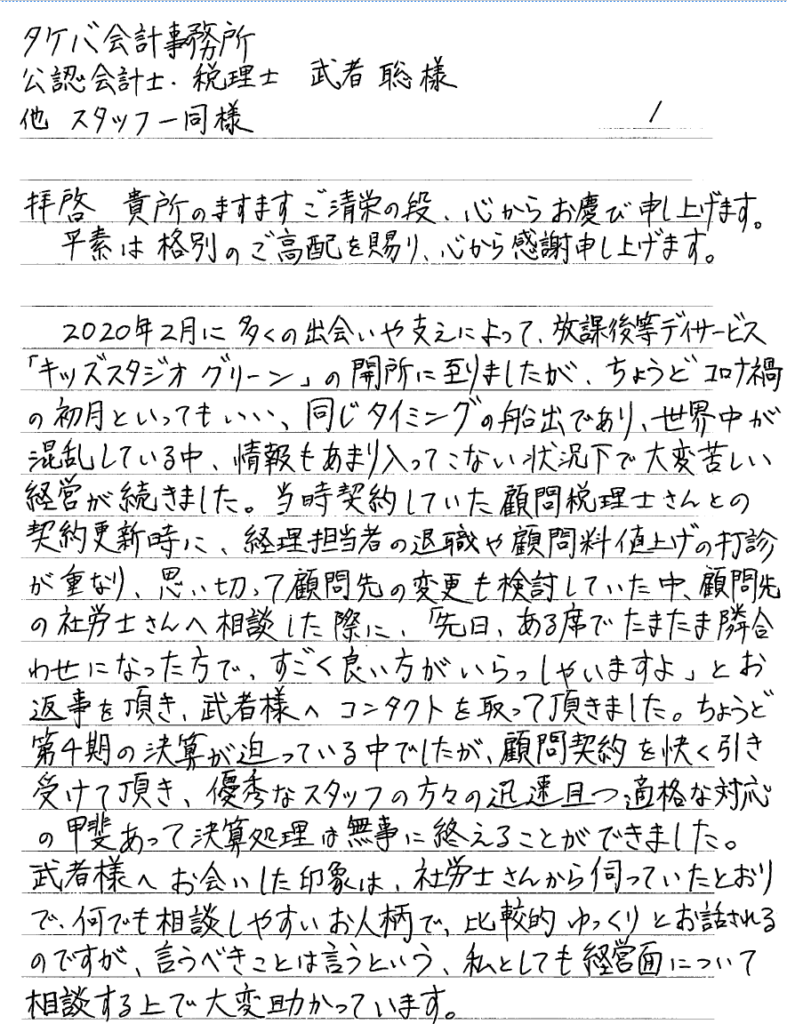 タケバ会計事務所
公認会計士・税理士 武者 聡様
他 スタッフ一同様
1
拝啓 貴所のますますご清栄の段、心からお慶び申し上げます。
平素は格別のご高配を賜り、心から感謝申し上げます。
2020年2月に多くの出会いや支えによって、放課後等デイサービス
「キッズスタジオ グリーン」の開所に至りましたが、ちょうどコロナ禍
の初月といってもいい、同じタイミングの船出であり、世界中が
混乱している中、情報もあまり入ってこない状況下で大変苦しい
経営が続きました。当時契約していた顧問税理士さんとの
契約更新時に、経理担当者の退職や顧問料値上げの打診
が重なり、思い切って顧問先の変更も検討していた中、顧問先
の社労士さんへ相談した際に、「先日、ある席でたまたま隣合
わせになった方で、すごく良い方がいらっしゃいますよ」とお
返事を頂き、武者様へコンタクトを取って頂きました。ちょうど
第4期の決算が迫っている中でしたが、顧問契約を快く引き
受けて頂き、優秀なスタッフの方々の迅速且つ適格な対応
の甲斐あって決算処理は無事に終えることができました。
武者様へお会いした印象は、社労士さんから伺っていたとおり
で、何でも相談しやすいお人柄で、比較的ゆっくりとお話される
のですが、言うべきことは言うという、私としても経営面について
相談する上で大変助かっています。